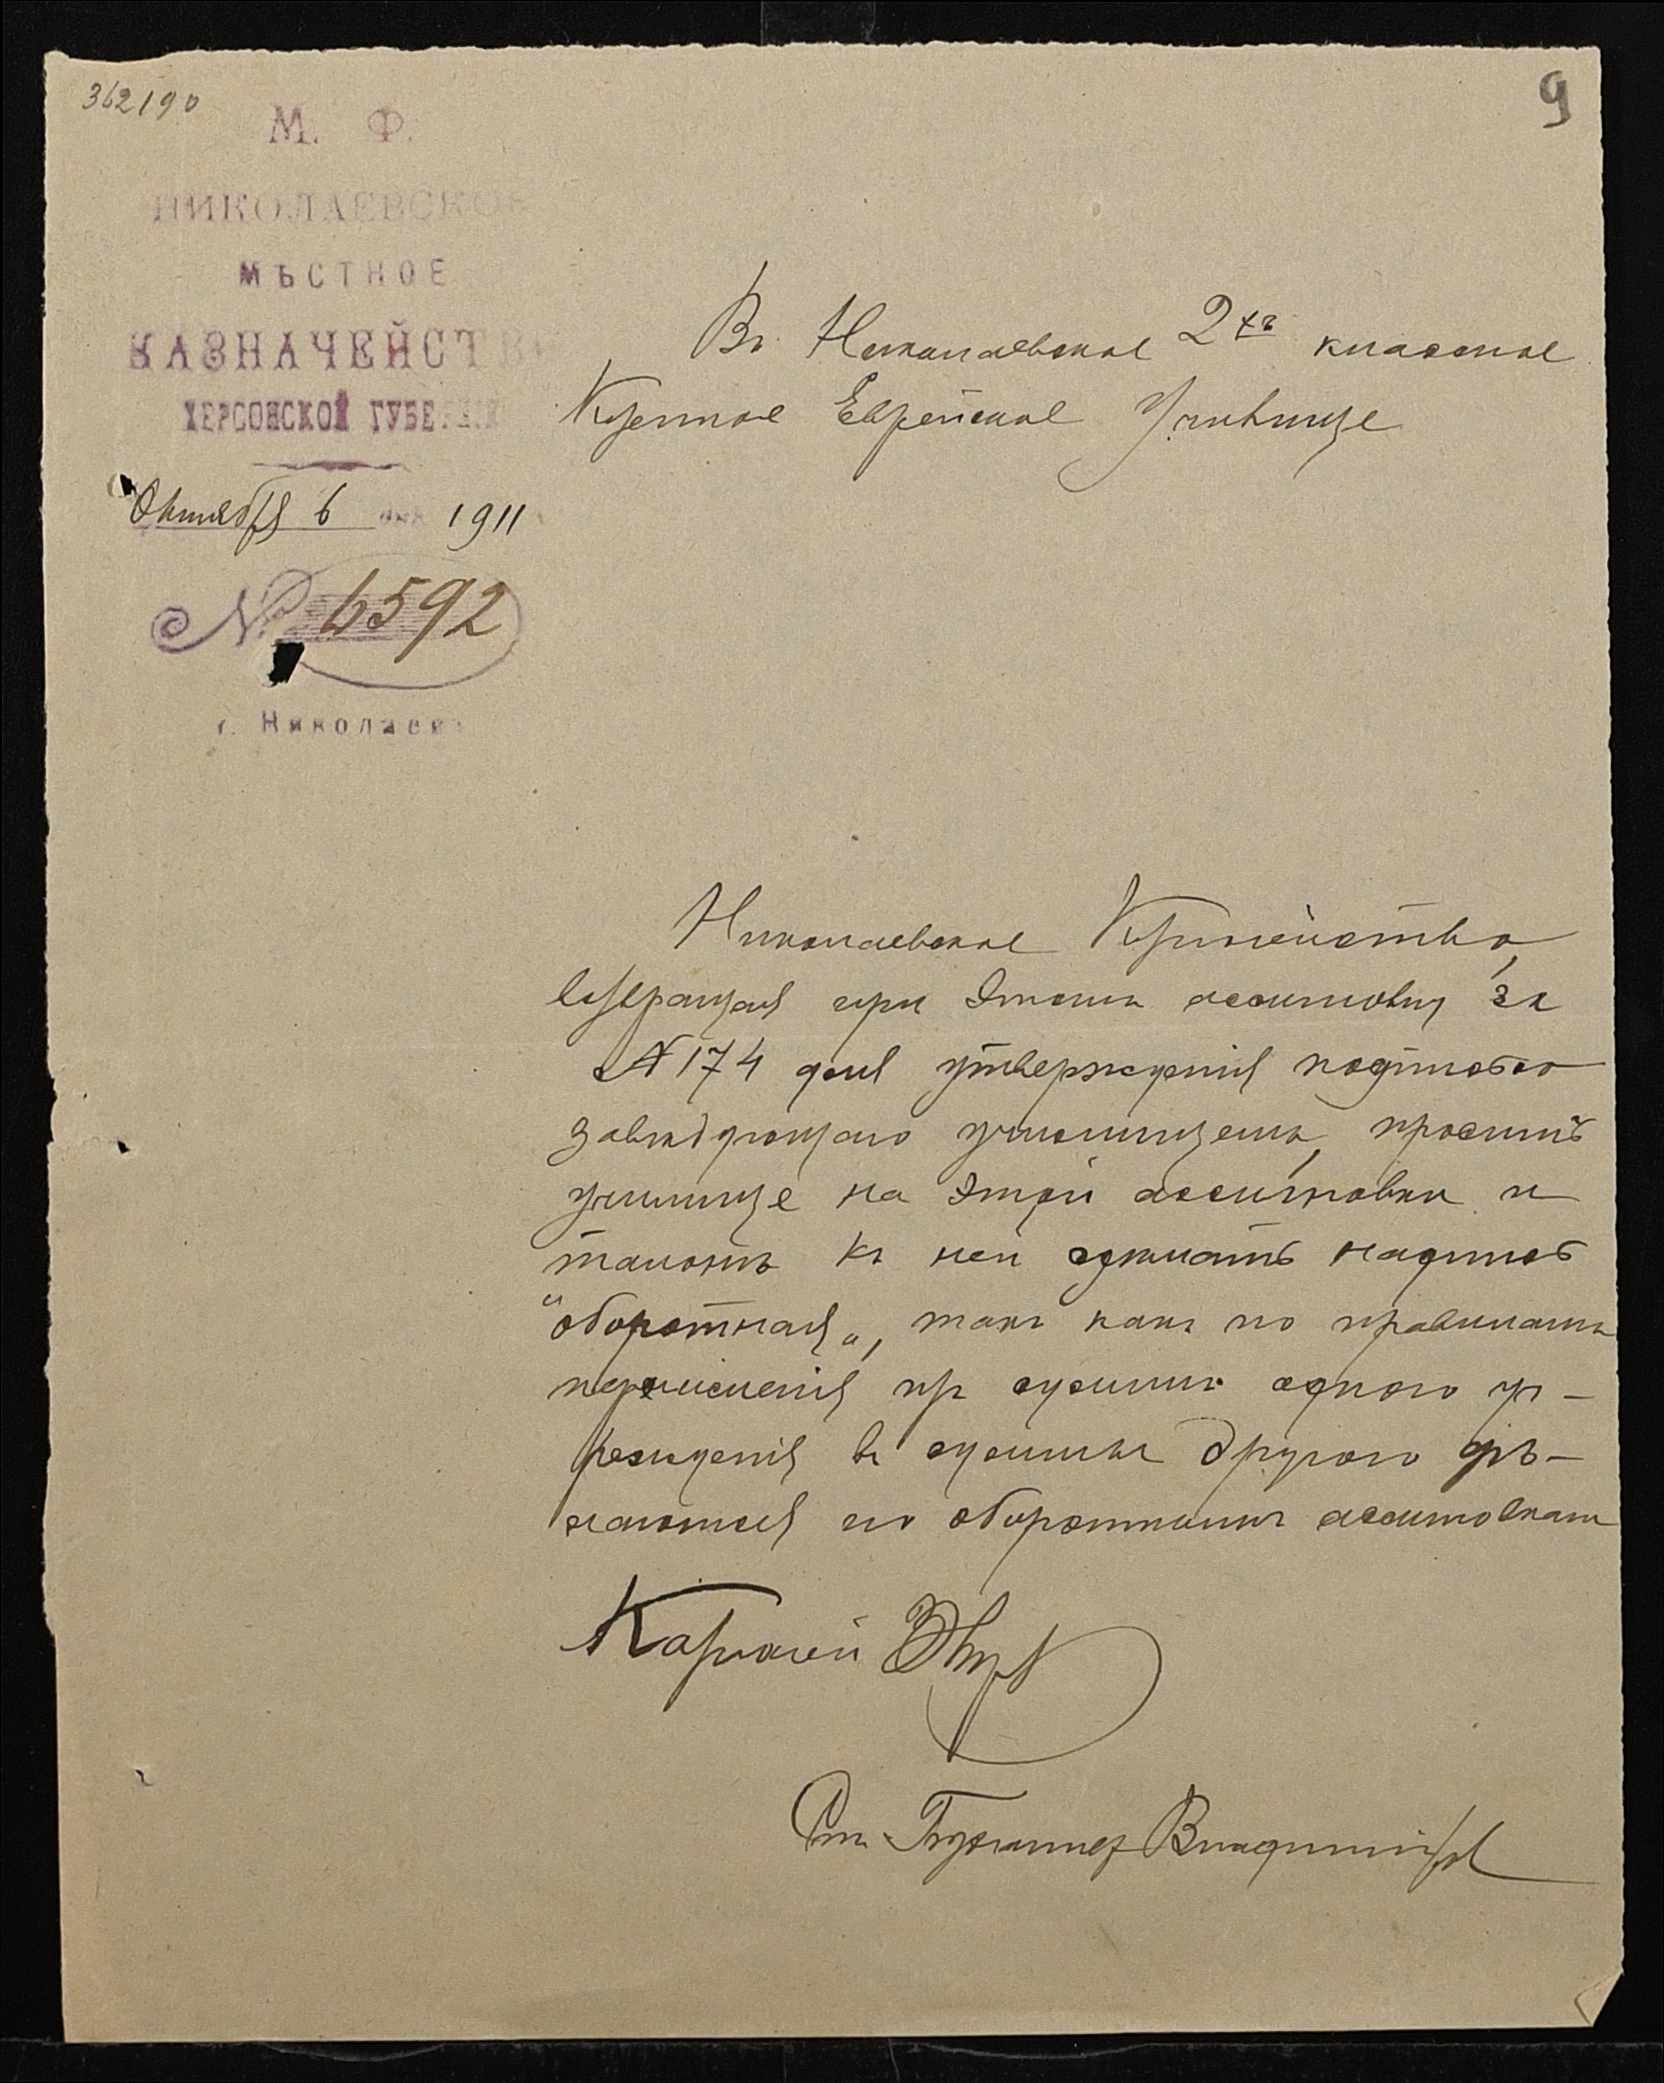 362190
9
М. Ф.
НИКОЛАЕВСКОЕ
МѢСТНОЕ
КАЗНАЧЕЙСТВО
ХЕРСОНСКОЙ ГУБЕРНІИ
Октября 6 дня 1911
№ 6592
г. Николаевъ
Въ Николаевское 2хъ классное
Казенное Еврейское Училище
Николаевское Казначейство,
возвращая при этомъ ассигновку за
№ 174 для утвержденія подписью
завѣдующаго училищемъ, проситъ
училище на этой ассигновки и
талонъ къ ней сдѣлать надпись
"оборотная", такъ какъ по правиламъ
перечисленія изъ суммъ одного уч-
режденія въ суммы другого дѣ-
лаются по оборотнымъ ассигновкам
Казначей
Ст. Бухгалтер Владиміров